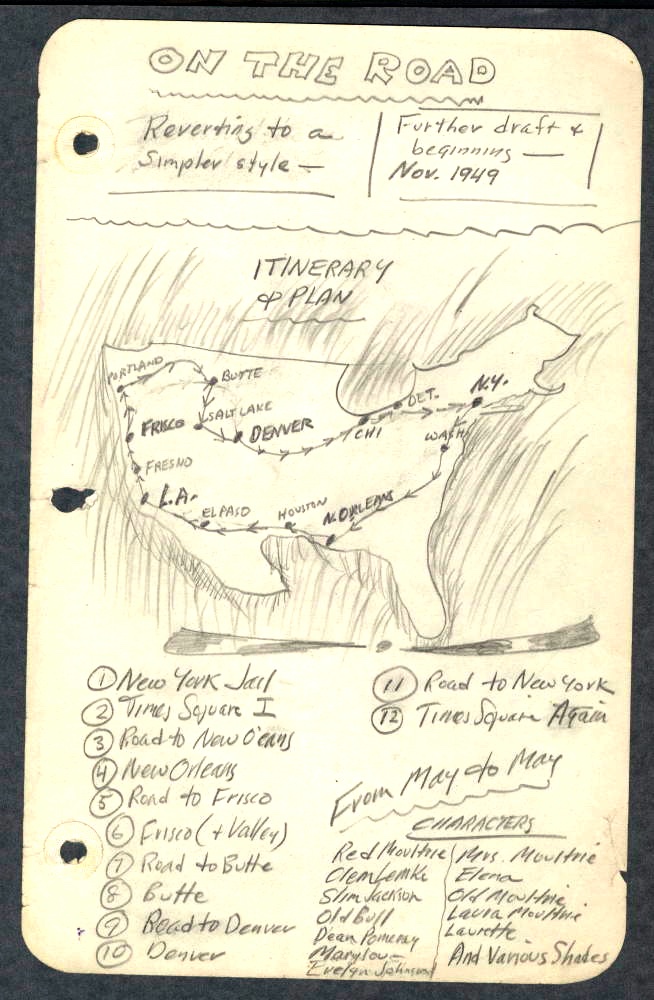 ON THE ROAD
Reverting to a
Simpler style —
Further draft &
beginning —
Nov. 1949
ITINERARY
& PLAN
PORTLAND
BUTTE
SALT LAKE
FRISCO
DENVER
FRESNO
L.A.
EL PASO
HOUSTON
N. ORLEANS
WASH.
CHI
DET.
N.Y.
1 New York Jail
2 Times Square I
3 Road to New O'eans
4 New Orleans
5 Road to Frisco
6 Frisco (+ Valley)
7 Road to Butte
8 Butte
9 Road to Denver
10 Denver
11 Road to New York
12 Times Square Again
From May to May
CHARACTERS
Red Moultrie
Clem Lemke
Slim Jackson
Old Bull
Dean Pomeray
Marylou —
Evelyn Johnson
Mrs. Moultrie
Elena
Old Moultrie
Laura Moultrie
Laurette
And Various Shades